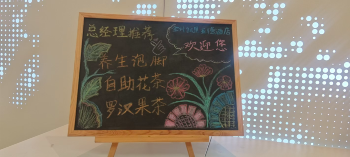 总经理推荐
欢迎您
养生泡脚
自助花茶
罗汉果茶